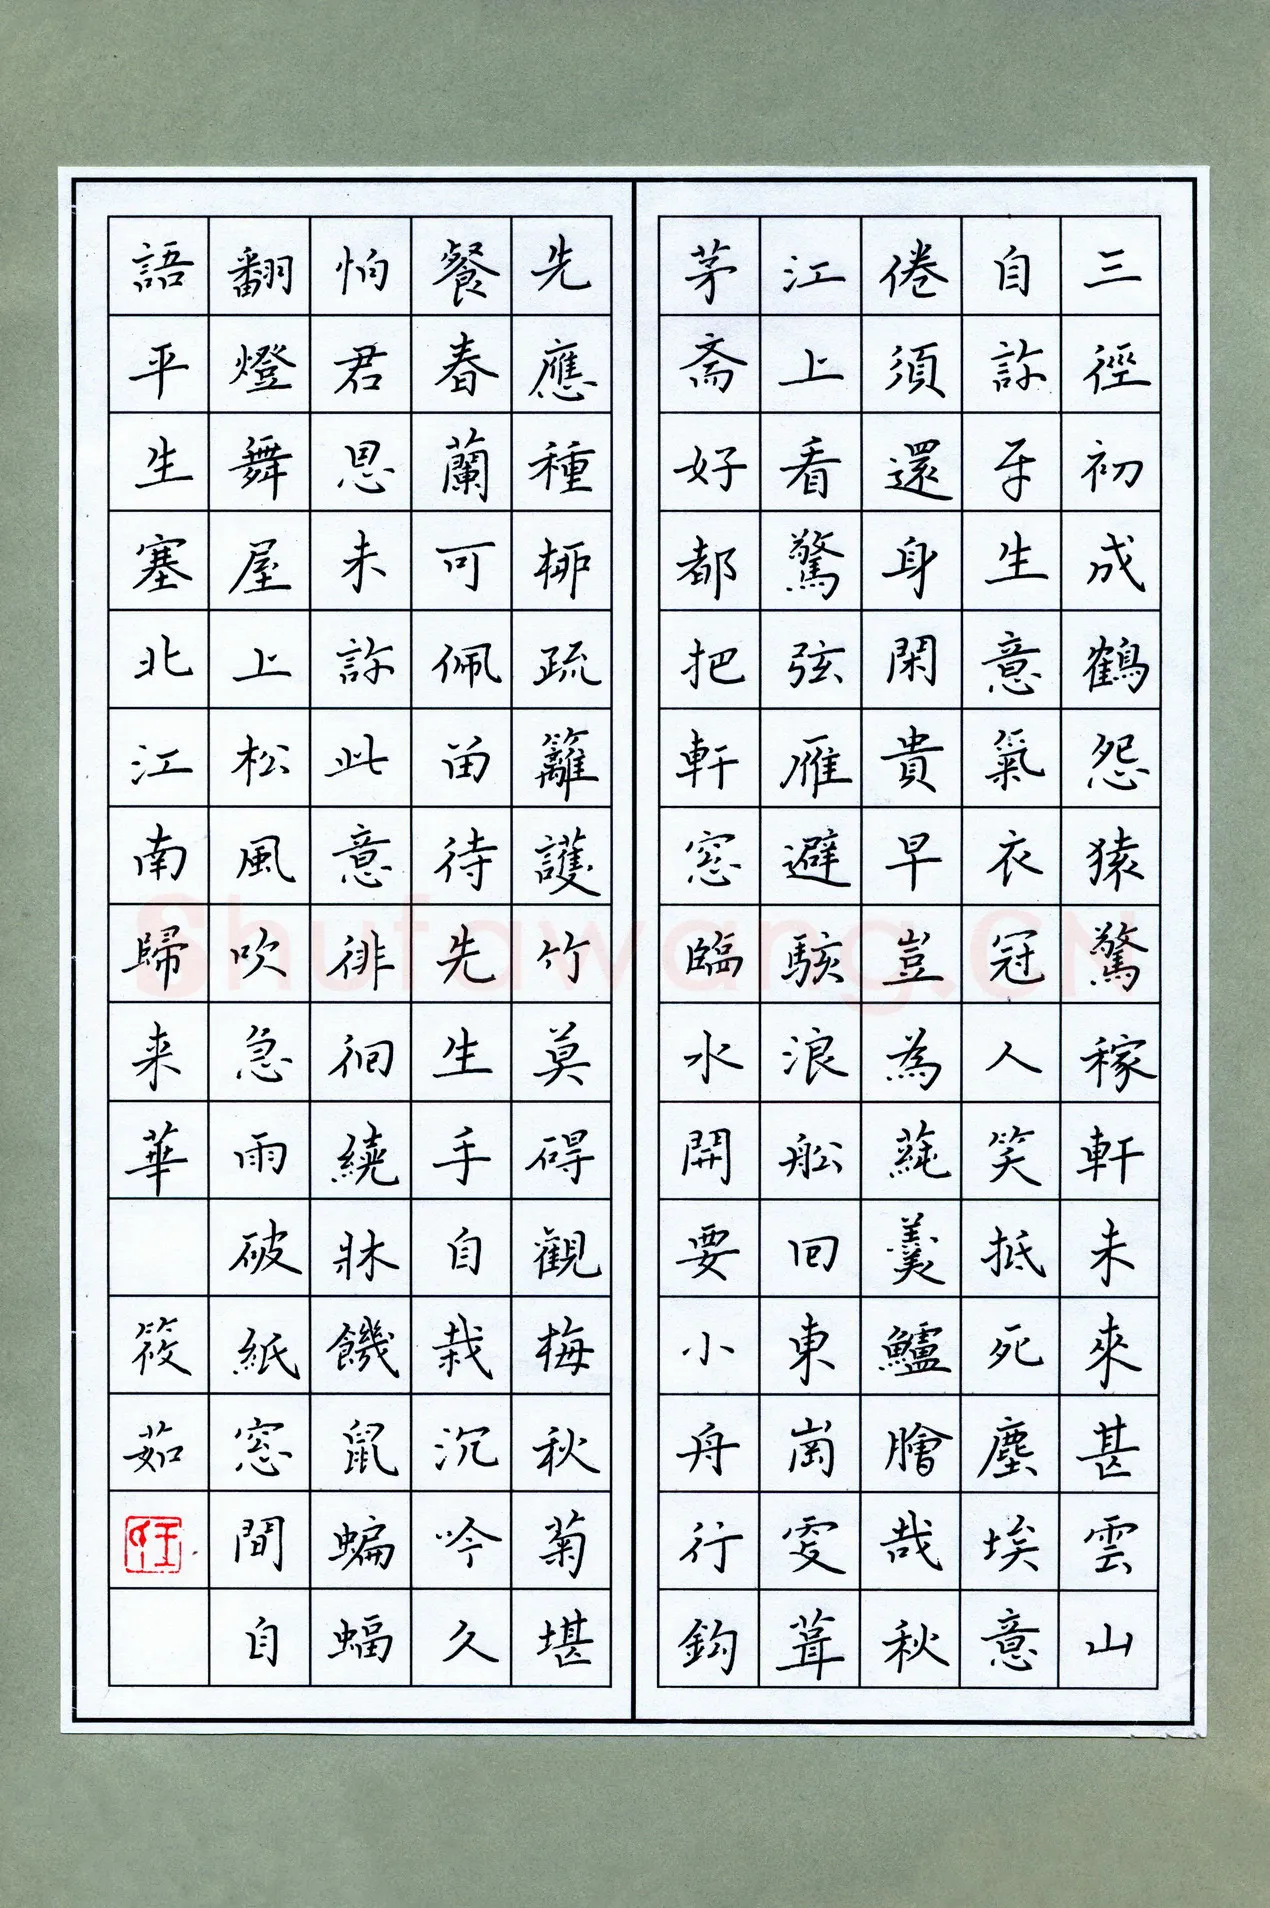 三徑初成鶴怨猿驚稼軒未來甚雲山
自許平生意氣衣冠人笑抵死塵埃意
倦須還身閑貴早豈為蓴羹鱸膾哉秋
江上看驚弦雁避駭浪舩回東崗雯葺
茅斋好都把軒窓臨水開要小舟行釣
先應種栁疏籬護竹莫碍觀梅秋菊堪
餐春蘭可佩畄待先生手自栽沉吟久
怕君恩未許此意徘徊繞牀饑鼠蝙蝠
翻燈舞屋上松風吹急雨破紙窓間自
語平生塞北江南歸来華
筱茹
Shufawang.CN